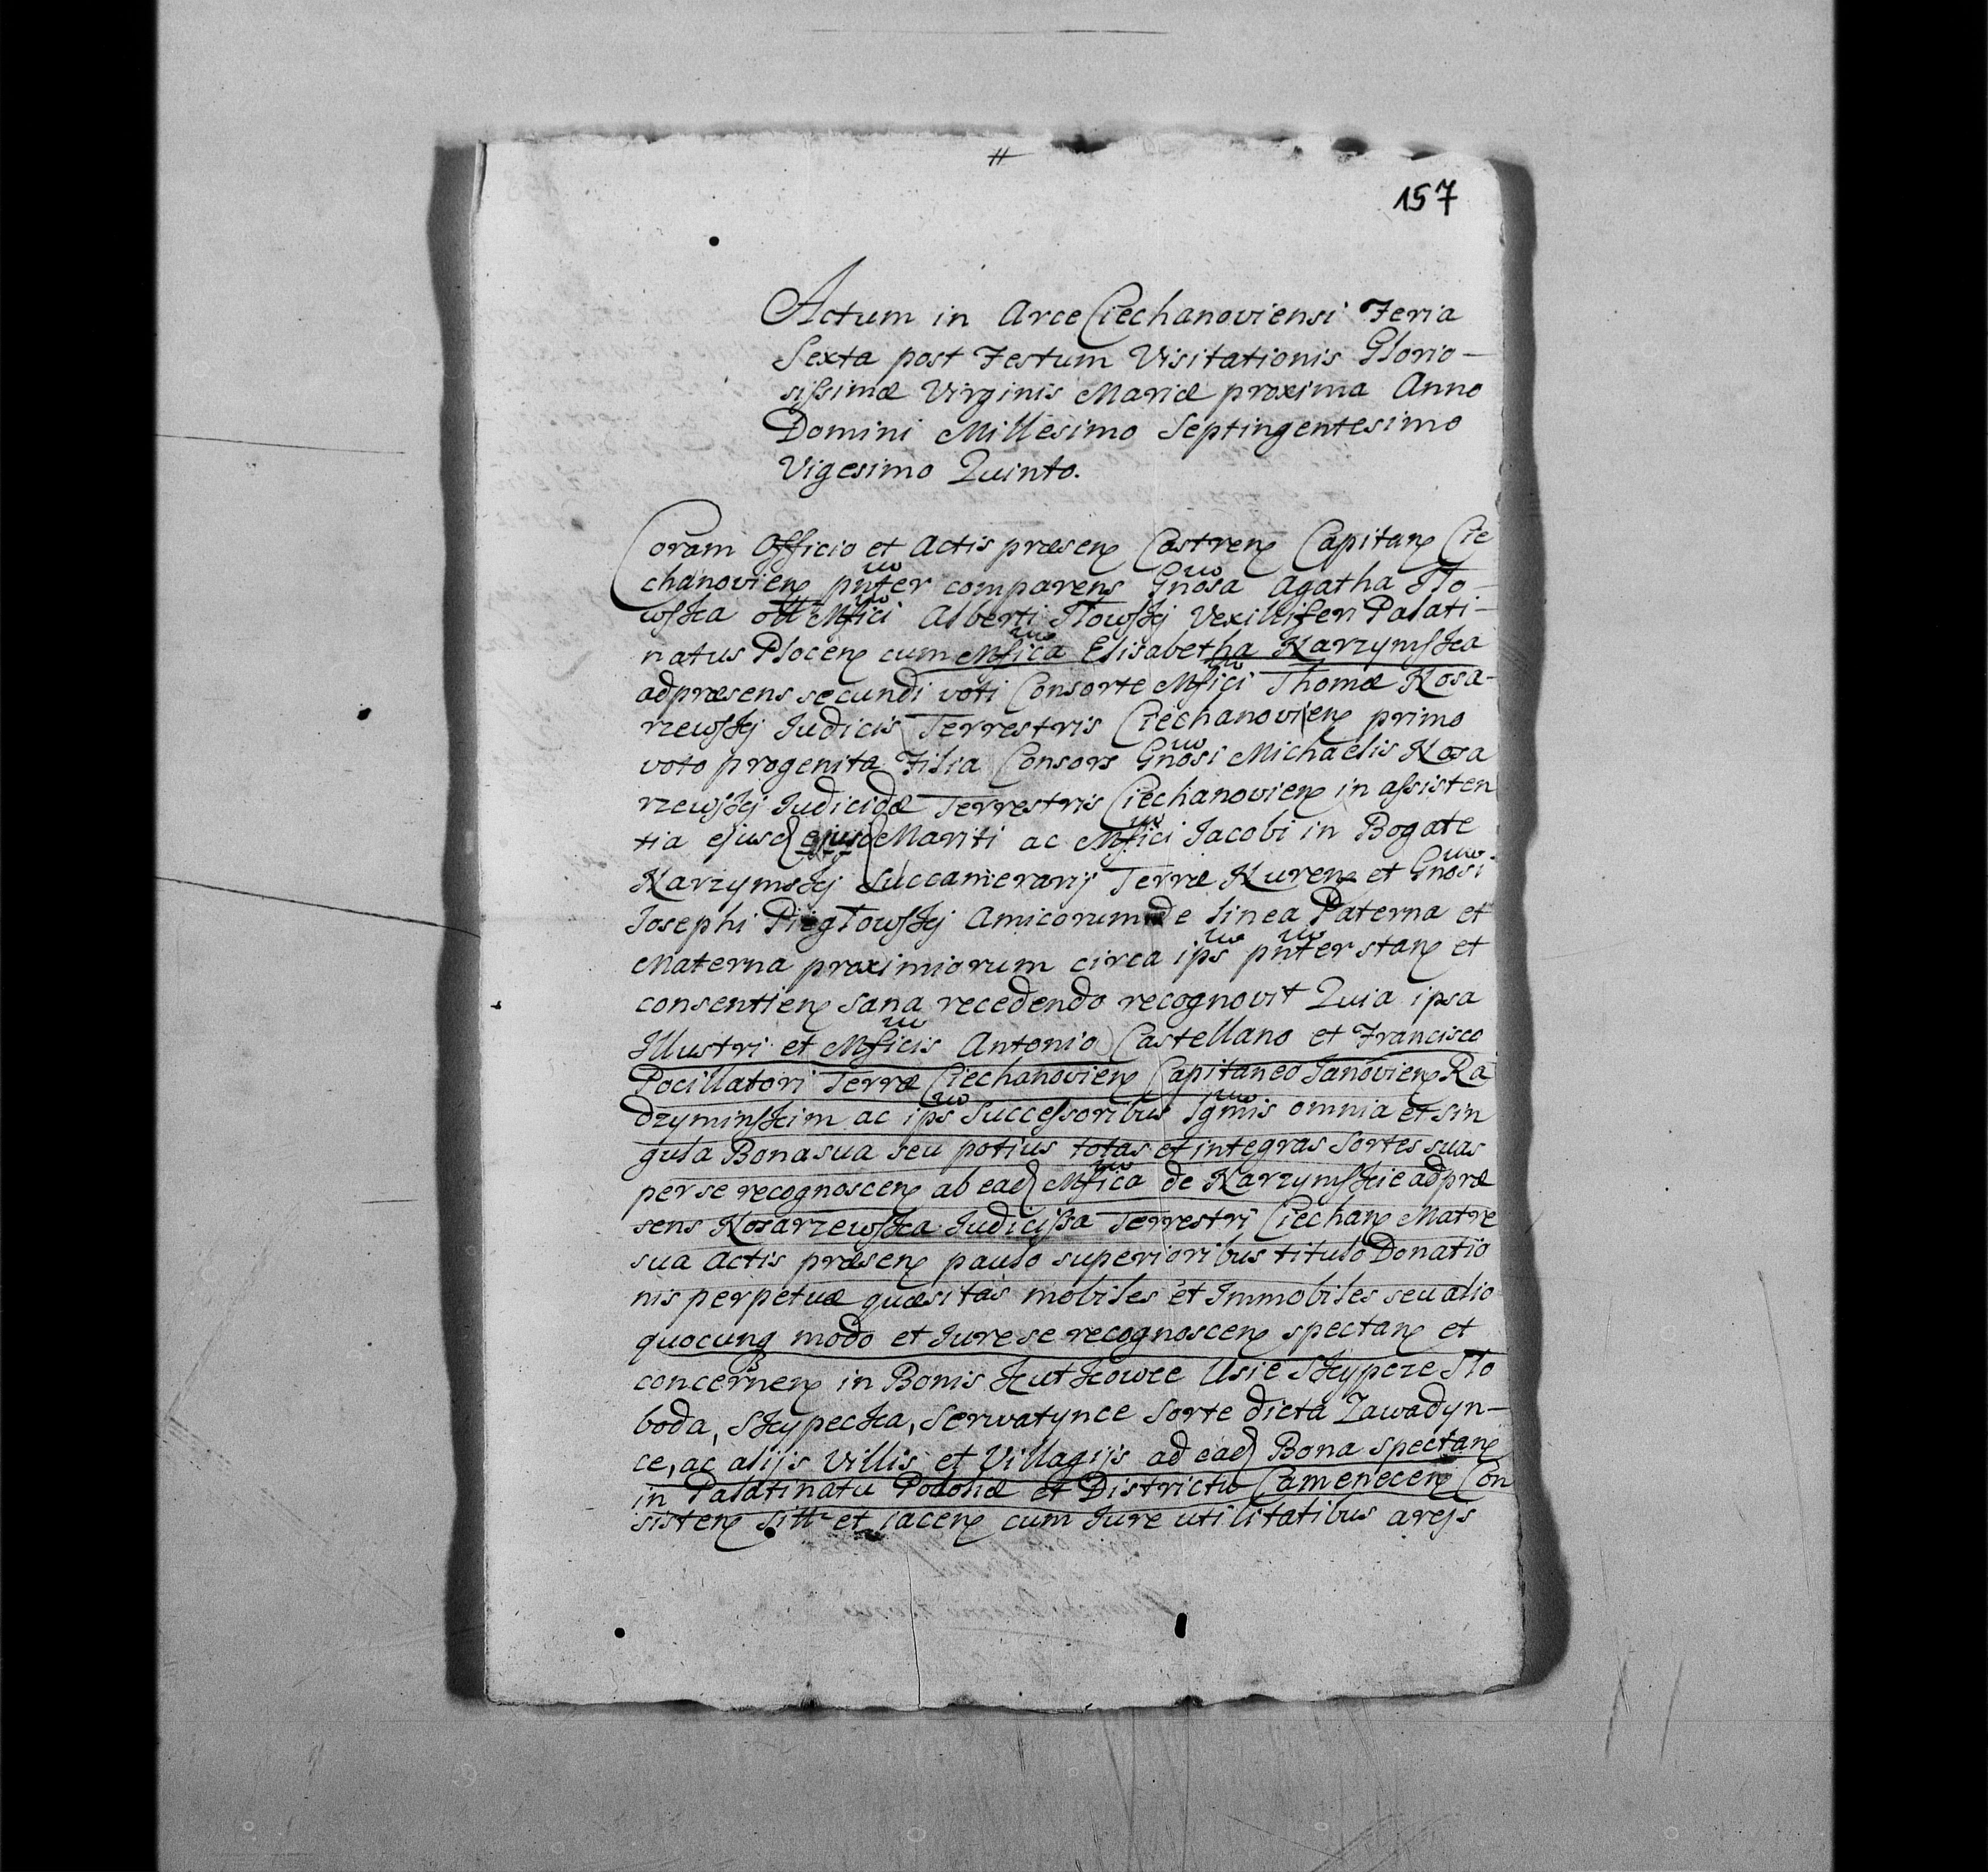 157
Actum in Arce Ciechanoviensi Feria
Sexta post Festum Visitationis Glorio-
sissimæ Virginis Mariæ proxima Anno
Domini Millesimo Septingentesimo
Vigesimo Quinto.
Coram Officio et Actis præsen Castren Capitan Cie
chanovien pnter comparens Gnosa Agatha Sło-
wska olim Mfici Alberti Słowskj Vexilliferi Palati-
natus Plocen cum Mfica Elisabetha Karzymska
ad præsens secundi voti Consorte Mfici Thomæ Kosa-
rzewskj Judicis Terrestris Ciechanovien primo
voto progenita Filia Consors Gnosi Michaelis Kosa
rzewskj Judicidæ Terrestris Ciechanovien in assisten
tia ejusd ejusd Mariti ac Mfici Jacobi in Bogate
Karzymskj Succamerarij Terræ Nuren et Gnosi
Josephi Piegłowskj Amicorum de linea Paterna et
Materna proximiorum circa ips pnter stan et
consentien sana recedendo recognovit Quia ipsa
Illustri et Mficis Antonio Castellano et Francisco
Pocillatori Terræ Ciechanovien Capitaneo Janovien Ra
dzyminskim ac ips Successoribus lgmis omnia et sin
gula Bona sua seu potius totas et integras Sortes suas
per se recognoscen ab ead Mfica de Karzymskie ad præ
sens Kosarzewska Judicissa Terrestri Ciechan Matre
sua Actis præsen paulo superioribus titulo Donatio
nis perpetuæ quæsitas mobiles et Immobiles seu alio
quocunq modo et Jure se recognoscen spectan et
concernen in Bonis Kutkowce Usie Skypcze Sło
boda, Skypecka, Serwatynce Sorte dicta Zawadyn-
ce, ac alijs Villis et Villagijs ad ead Bona spectan
in Palatinatu Podoliæ et Districtu Camenecen Con
sisten sitt et jacen cum Jure utilitatibus areis